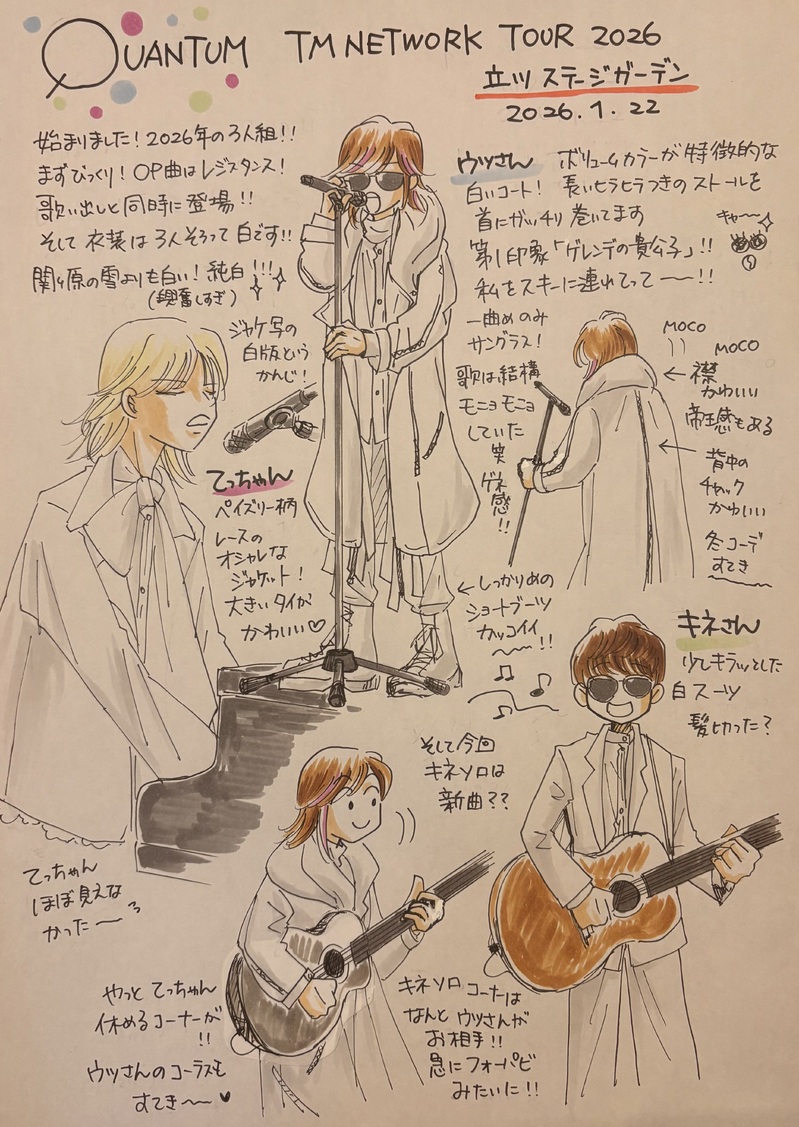 QUANTUM TM NETWORK TOUR 2026
立川 ステージガーデン
2026.1.22
始まりました！2026年の3人組！！
まずびっくり！OP曲はレジスタンス！
歌い出しと同時に登場！！
そして 衣装は3人そろって白です！！
関ヶ原の雪よりも白い！純白！！！
(興奮しすぎ)
ウツさん ボリュームカラーが特徴的な
白いコート！ 長いヒラヒラつきのストールを
首にガッチリ巻いてます
第1印象「ゲレンデの貴公子」！！
キャー〜
私をスキーに連れてって――！！
一曲めのみ
サングラス！
歌は結構
モニョモニョ
していた
笑
ゲネ
感！！
MOCO
MOCO
← 襟
かわいい
帝王感もある
← 背中の
チャック
かわいい
冬コーデ
すてき
ジャケ写の
白版という
かんじ！
てっちゃん
ペイズリー柄
レースの
オシャレな
ジャケット！
大きいタイが
かわいい♡
← しっかりめの
ショートブーツ
カッコイイ
〜〜！！
キネさん
少しキラッとした
白スーツ
髪切った？
そして今回
キネソロは
新曲？？
てっちゃん
ほぼ見えな
かった―〜
やっと てっちゃん
休めるコーナーが
！！
ウツさんのコーラスも
すてき〜〜♥
キネソロコーナーは
なんと ウツさんが
お相手！！
急にフォーパビ
みたいに！！